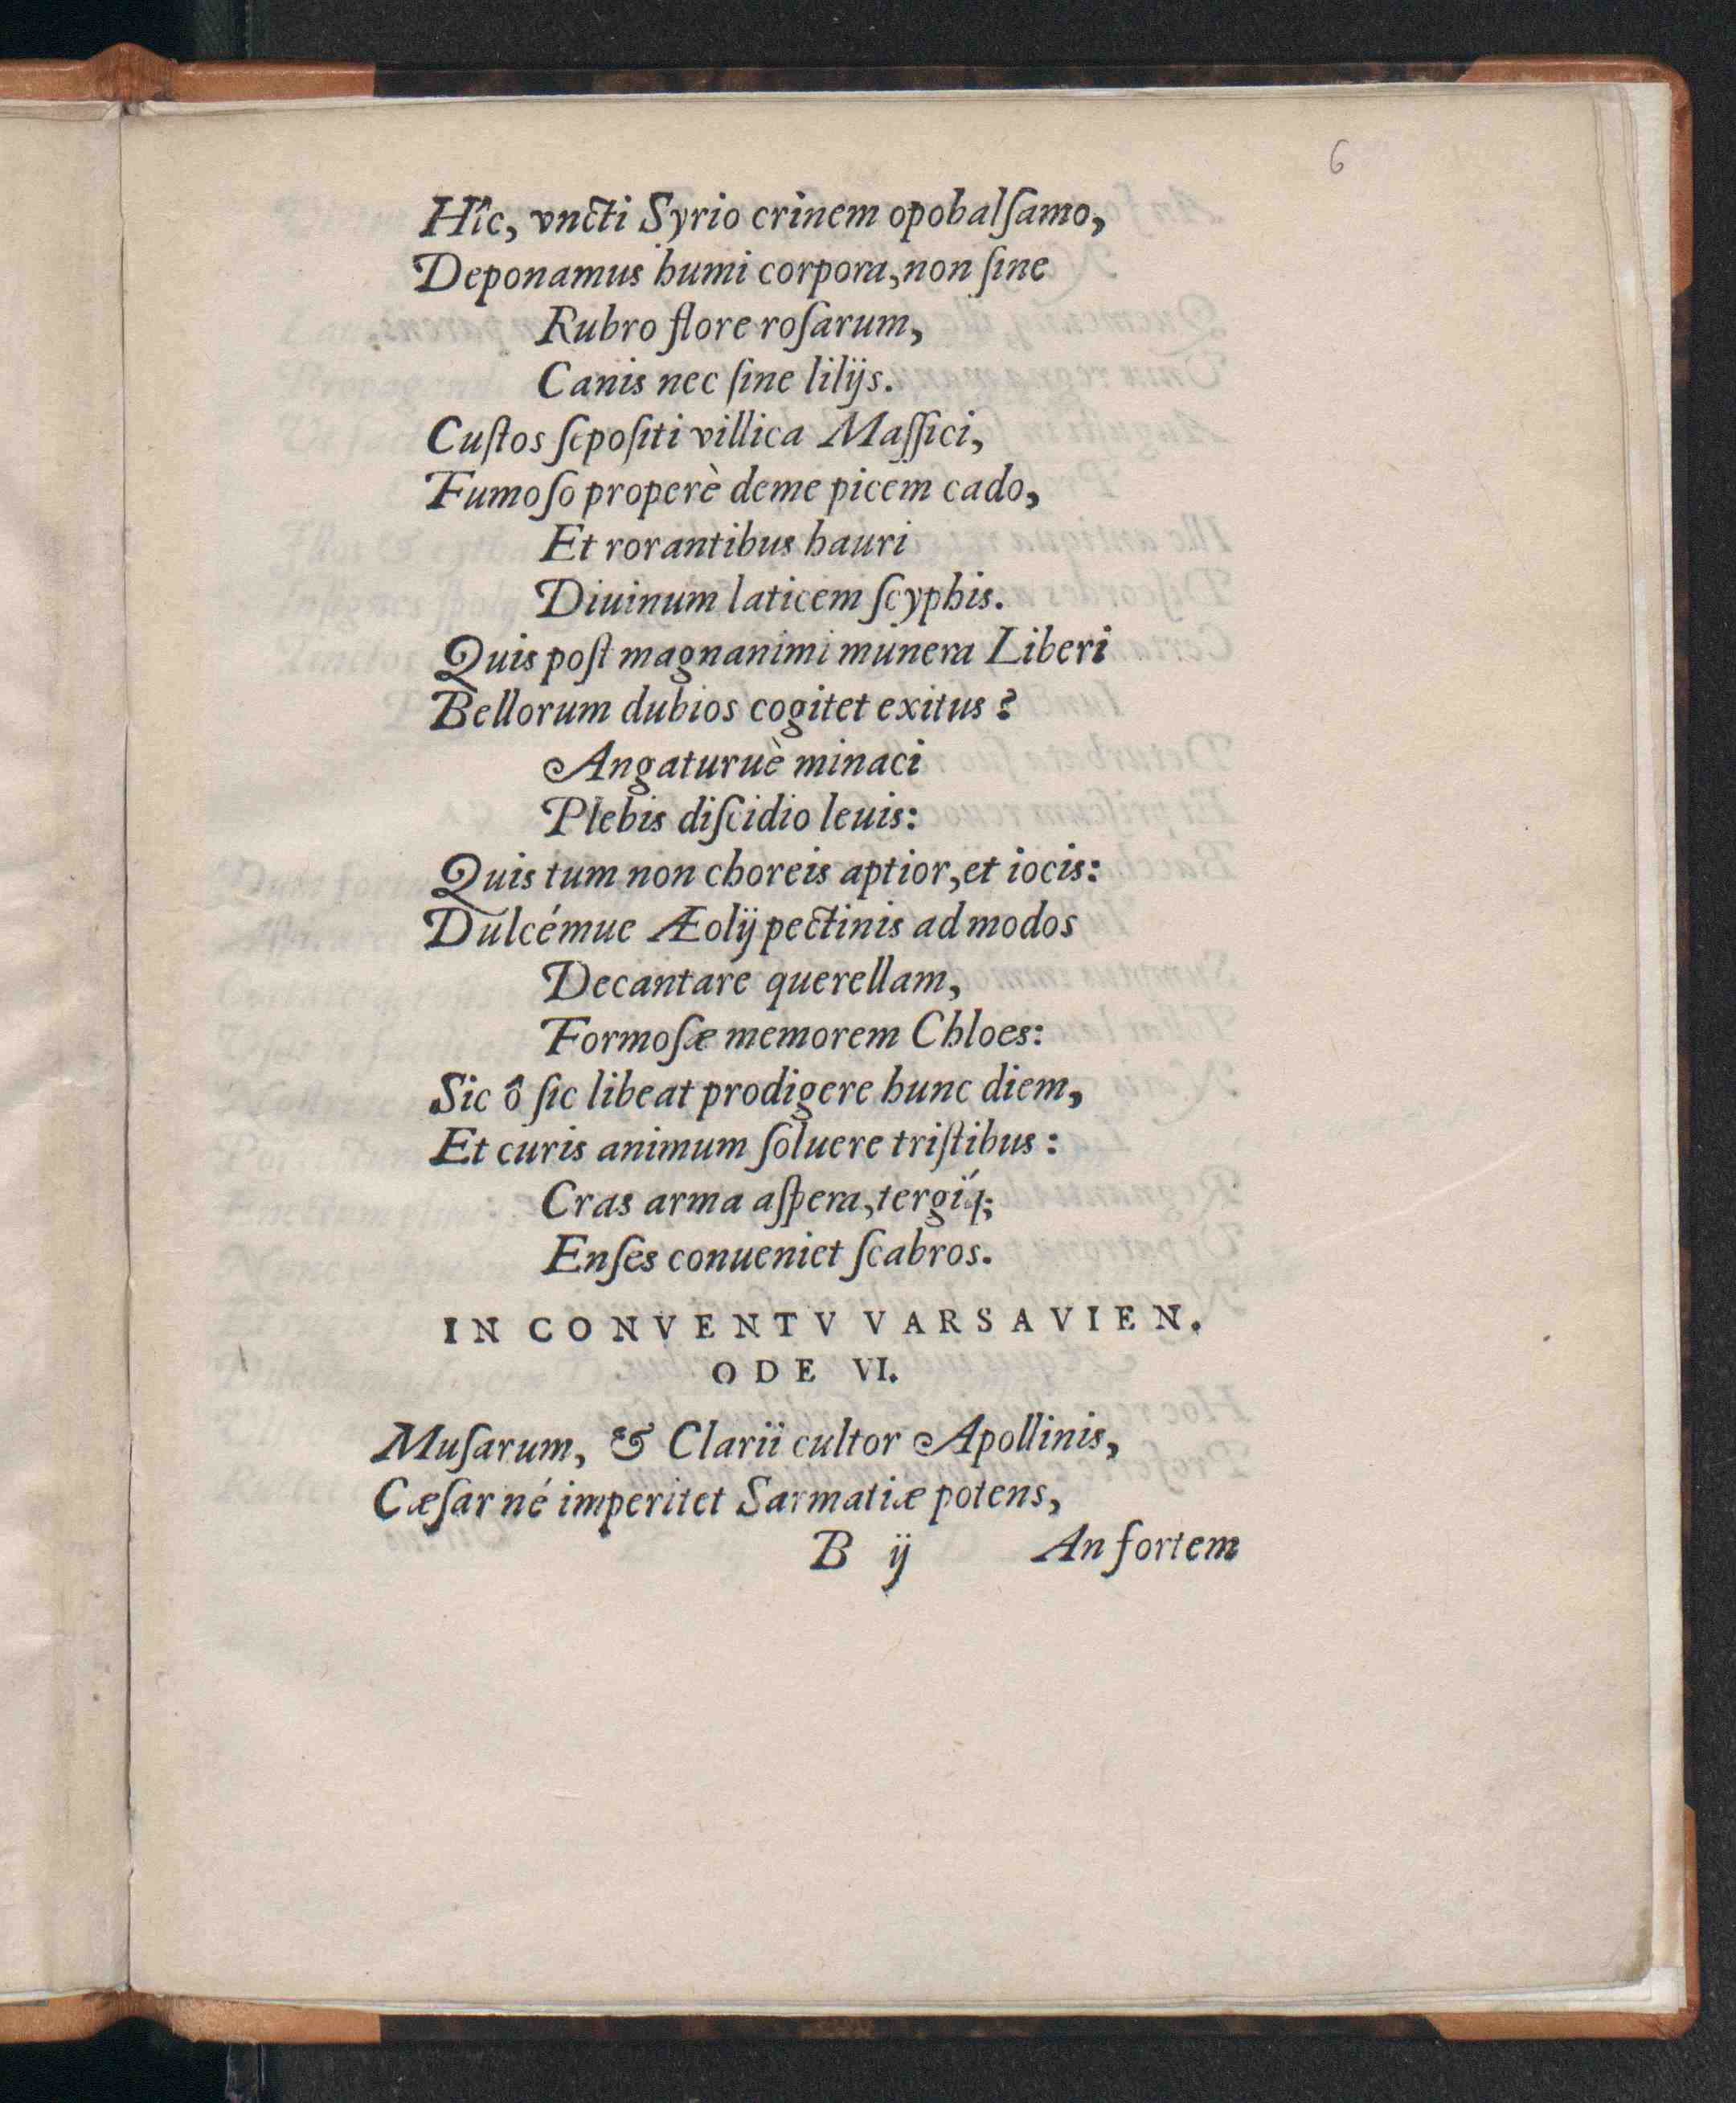 6
Hîc, vncti Syrio crinem opobalſamo,
Deponamus humi corpora, non ſine
Rubro flore roſarum,
Canis nec ſine lilijs.
Cuſtos ſepoſiti villica Maſſici,
Fumoſo properè deme picem cado,
Et rorantibus hauri
Diuinum laticem ſcyphis.
Quis poſt magnanimi munera Liberi
Bellorum dubios cogitet exitus?
Angaturuè minaci
Plebis diſcidio leuis:
Quis tum non choreis aptior, et iocis:
Dulcémue Æolij pectinis ad modos
Decantare querellam,
Formoſæ memorem Chloes:
Sic ô ſic libeat prodigere hunc diem,
Et curis animum ſoluere triſtibus:
Cras arma aſpera, tergíq;
Enſes conueniet ſcabros.
IN CONVENTV VARSAVIEN.
ODE VI.
Muſarum, & Clarii cultor Apollinis,
Cæſar né imperitet Sarmatiæ potens,
B ij An fortem